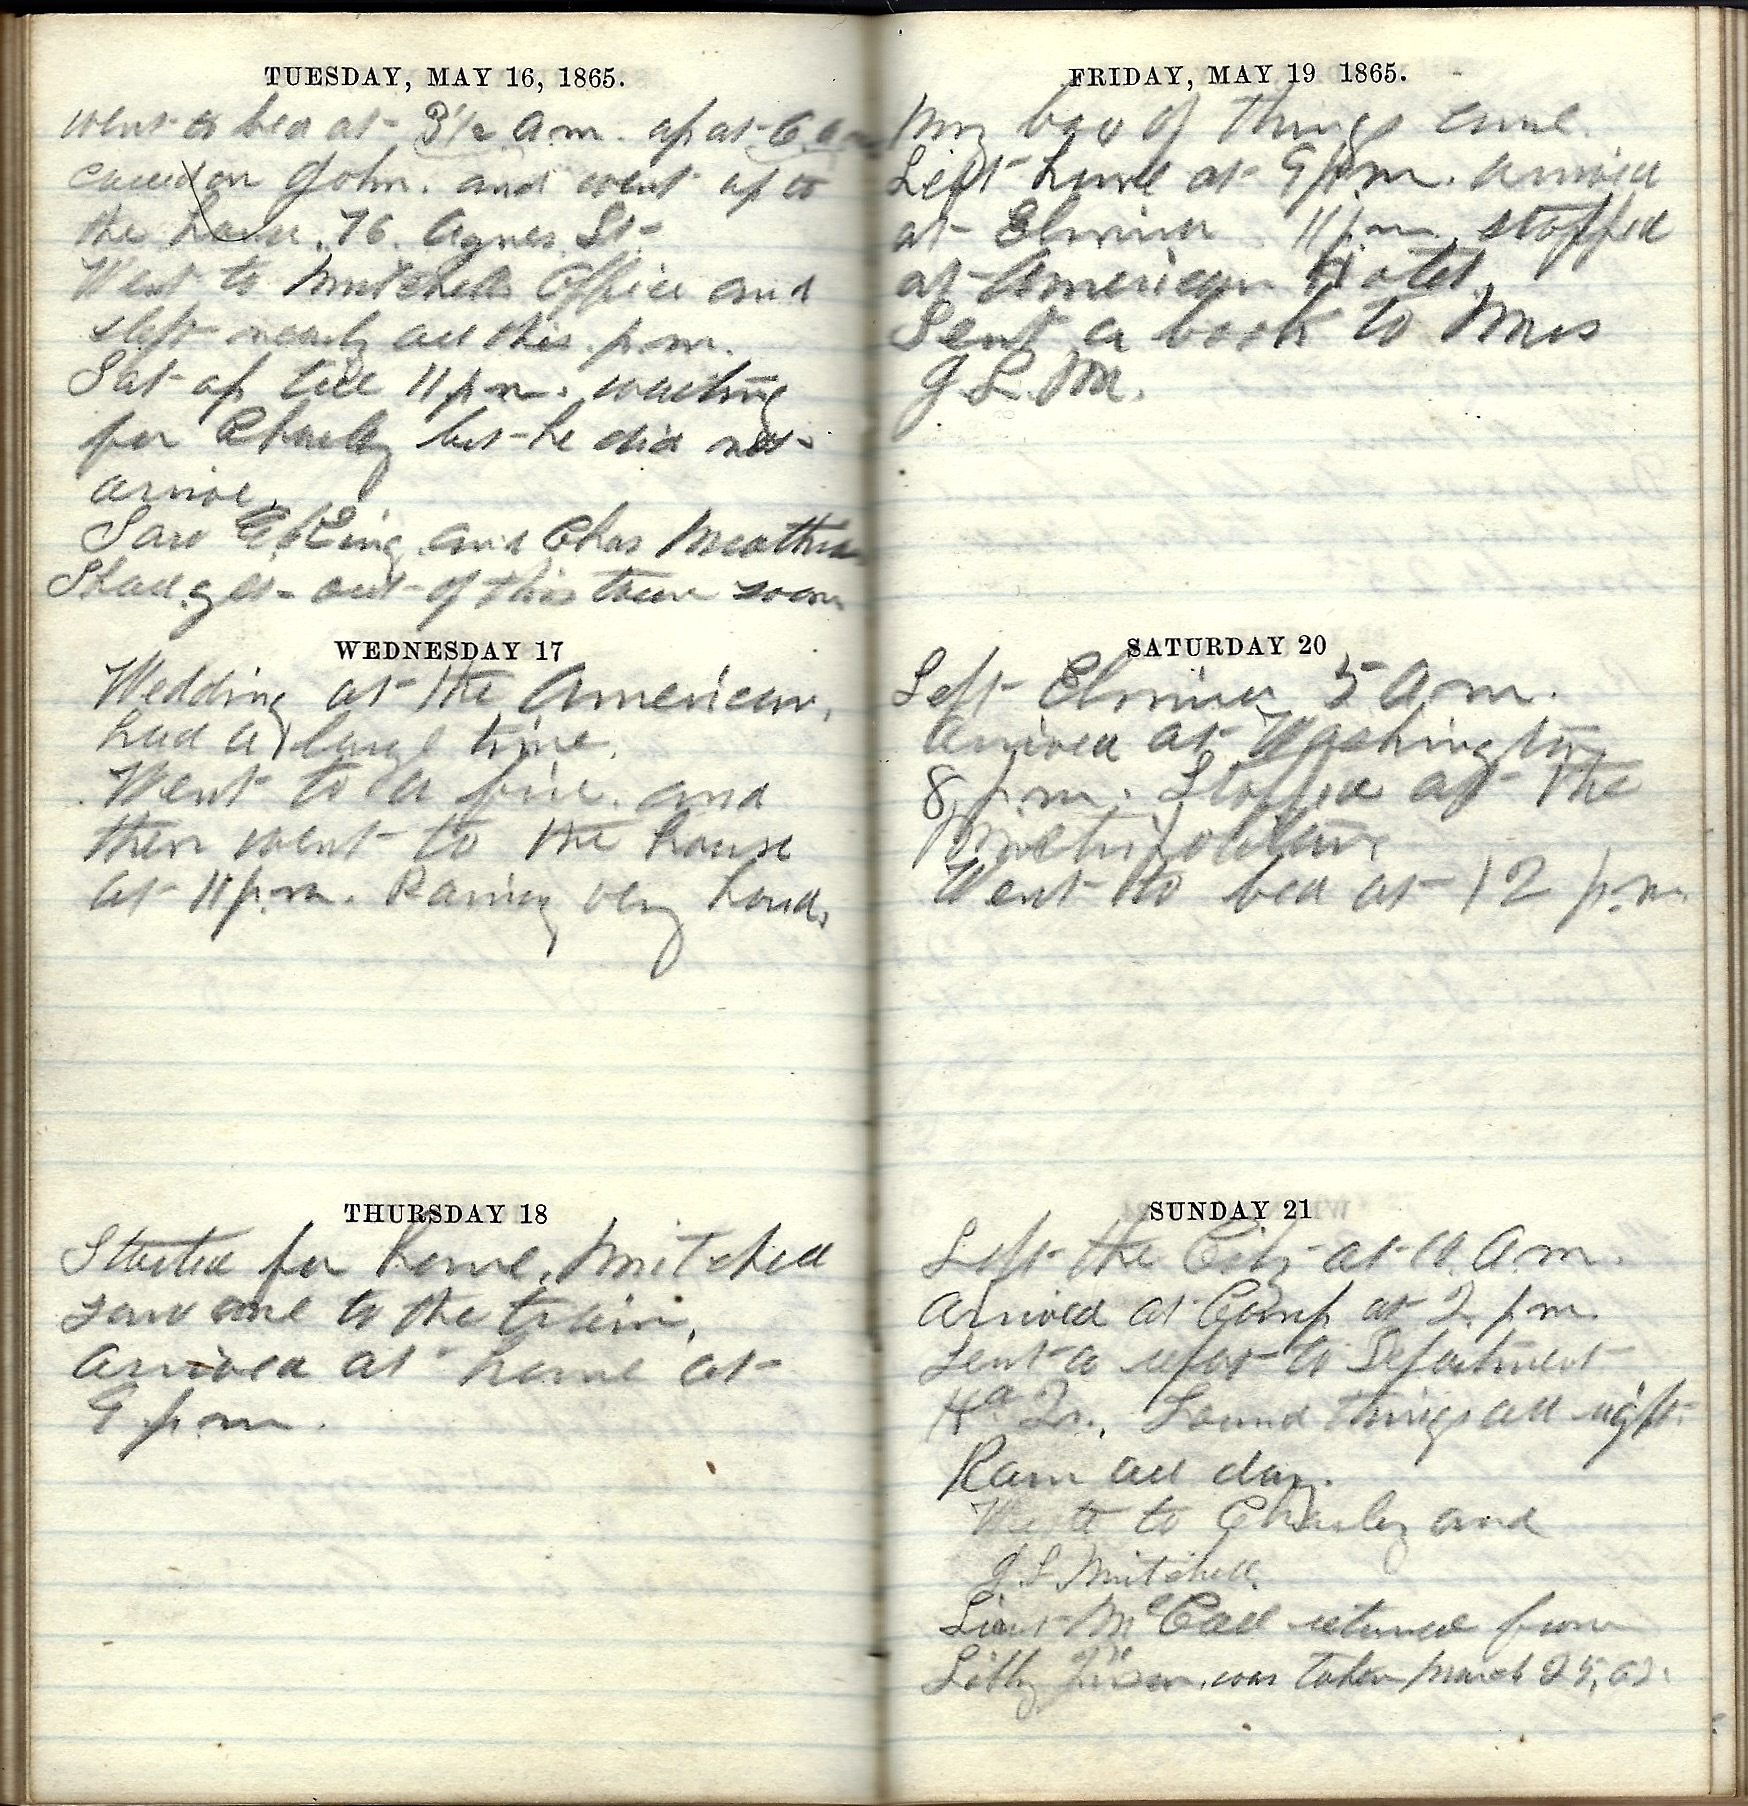 TUESDAY, MAY 16, 1865.
Went to bed at 3½ a.m. up at 6 a.m.
called on John. and went up to
the house. 76. Agnes St
Went to Mitchells Office and
slept nearly all this p.m.
Sat up till 11 p.m. waiting
for Charley but he did not
arrive.
Saw and Chas
Shall get out of this town soon
WEDNESDAY 17
Wedding at the American.
had a large time.
Went to a fire. and
then went to the house
at 11 p.m. Rainy very hard.
THURSDAY 18
Started for home. Mitchell
saw me to the train.
Arrived at home at
9 p.m.
FRIDAY, MAY 19 1865.
My box of things came.
Left home at 9 p.m. arrived
at Elmira 11 p.m. stopped
at American Hotel.
Sent a book to Mrs
J L. M.
SATURDAY 20
Left Elmira 5 a m.
Arrived at Washington
8 p.m. Stopped at the
Metropolitan.
Went to bed at 12 p.m.
SUNDAY 21
Left the City at 10. a.m.
Arrived at Camp at 2. p.m.
Sent a report to Department
Hd Qr. Found things all right.
Rain all day.
Wrote to Charley and
J. L Mitchell.
Lieut McCall returned from
Libby Prison. was taken March 25,